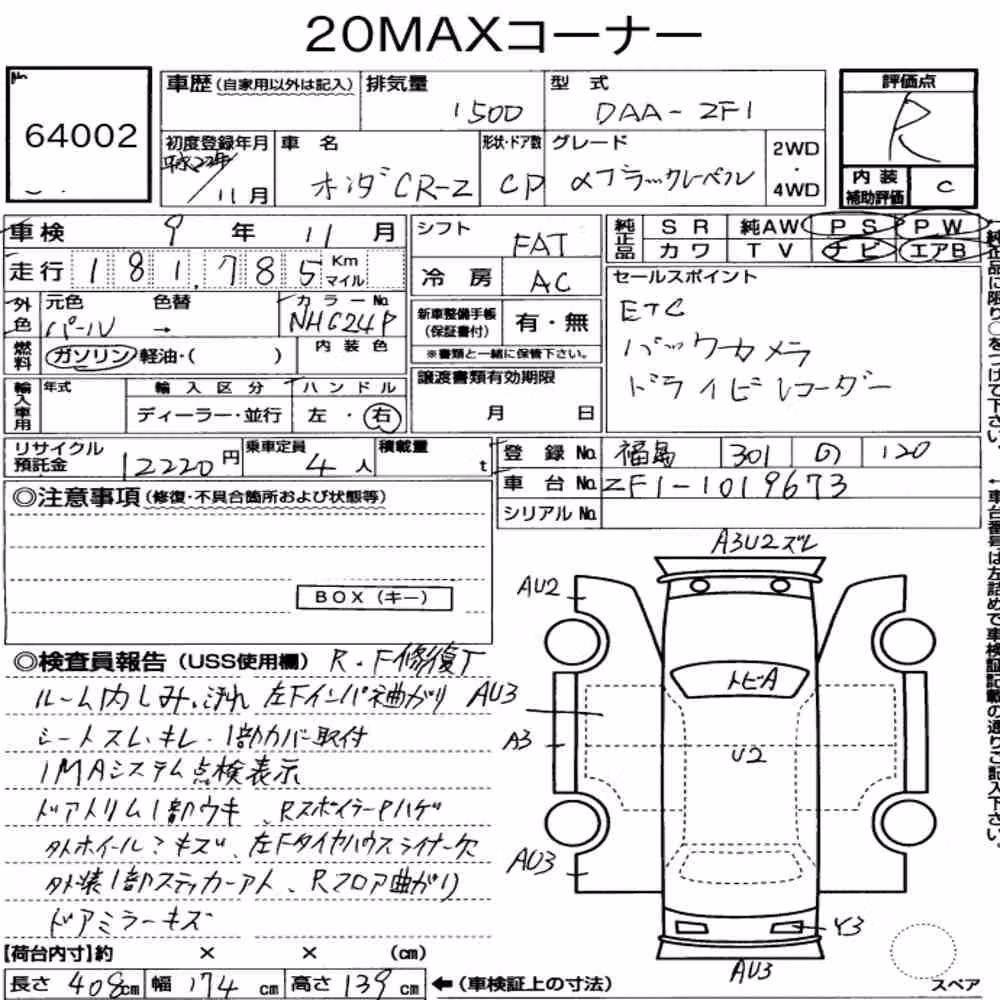 20MAXコーナー
No. 64002
車歴 (自家用以外は記入) 排気量 1500 型式 DAA-ZF1 評価点 R
初度登録年月 平成22年/11月 車名 ホンダCR-Z 形状・ドア数 CP グレード αブラックレーベル 2WD・4WD 内装補助評価 C
車検 9年 11月
走行 181,785 Km マイル
外色 元色 パール 色替 → カラーNo. NH624P
燃料 ガソリン 軽油・( ) 内装色
輸入車用 年式 輸入区分 ディーラー・並行 ハンドル 左・右
シフト FAT
冷房 AC
新車整備手帳 (保証書付) 有・無
※書類と一緒に保管下さい。
譲渡書類有効期限
月 日
純正品 SR 純AW PS PW
カワ TV ナビ エアB
セールスポイント
ETC
バックカメラ
ドライビレコーダー
リサイクル預託金 12220円 乗車定員 4人 積載量 t
登録No. 福島 301 の 120
車台No. ZF1-1019673
シリアルNo.
◎注意事項 (修復・不具合箇所および状態等)
BOX (キー)
◎検査員報告 (USS使用欄) R・F修復了
ルーム内しみ、汚れ 左Fインパネ曲がり
シートスレ・キレ・1部カバー取付
IMAシステム点検表示
ドアトリム1部ウキ、RスポイラーPハゲ
タトホイールミキズ、左Fタイヤハウスライナー欠
外装1部ステッカーアト、Rフロア曲がり
ドアミラーキズ
【荷台内寸】約 × × (cm)
長さ 408cm 幅 174cm 高さ 139cm ←(車検証上の寸法)
A3U2ズレ
AU2
トビA
AU3
A3
U2
AU3
Y3
AU3
スペア
純正品に限り○をつけて下さい。
↑車台番号は左詰めで車検証記載の通りご記入下さい。